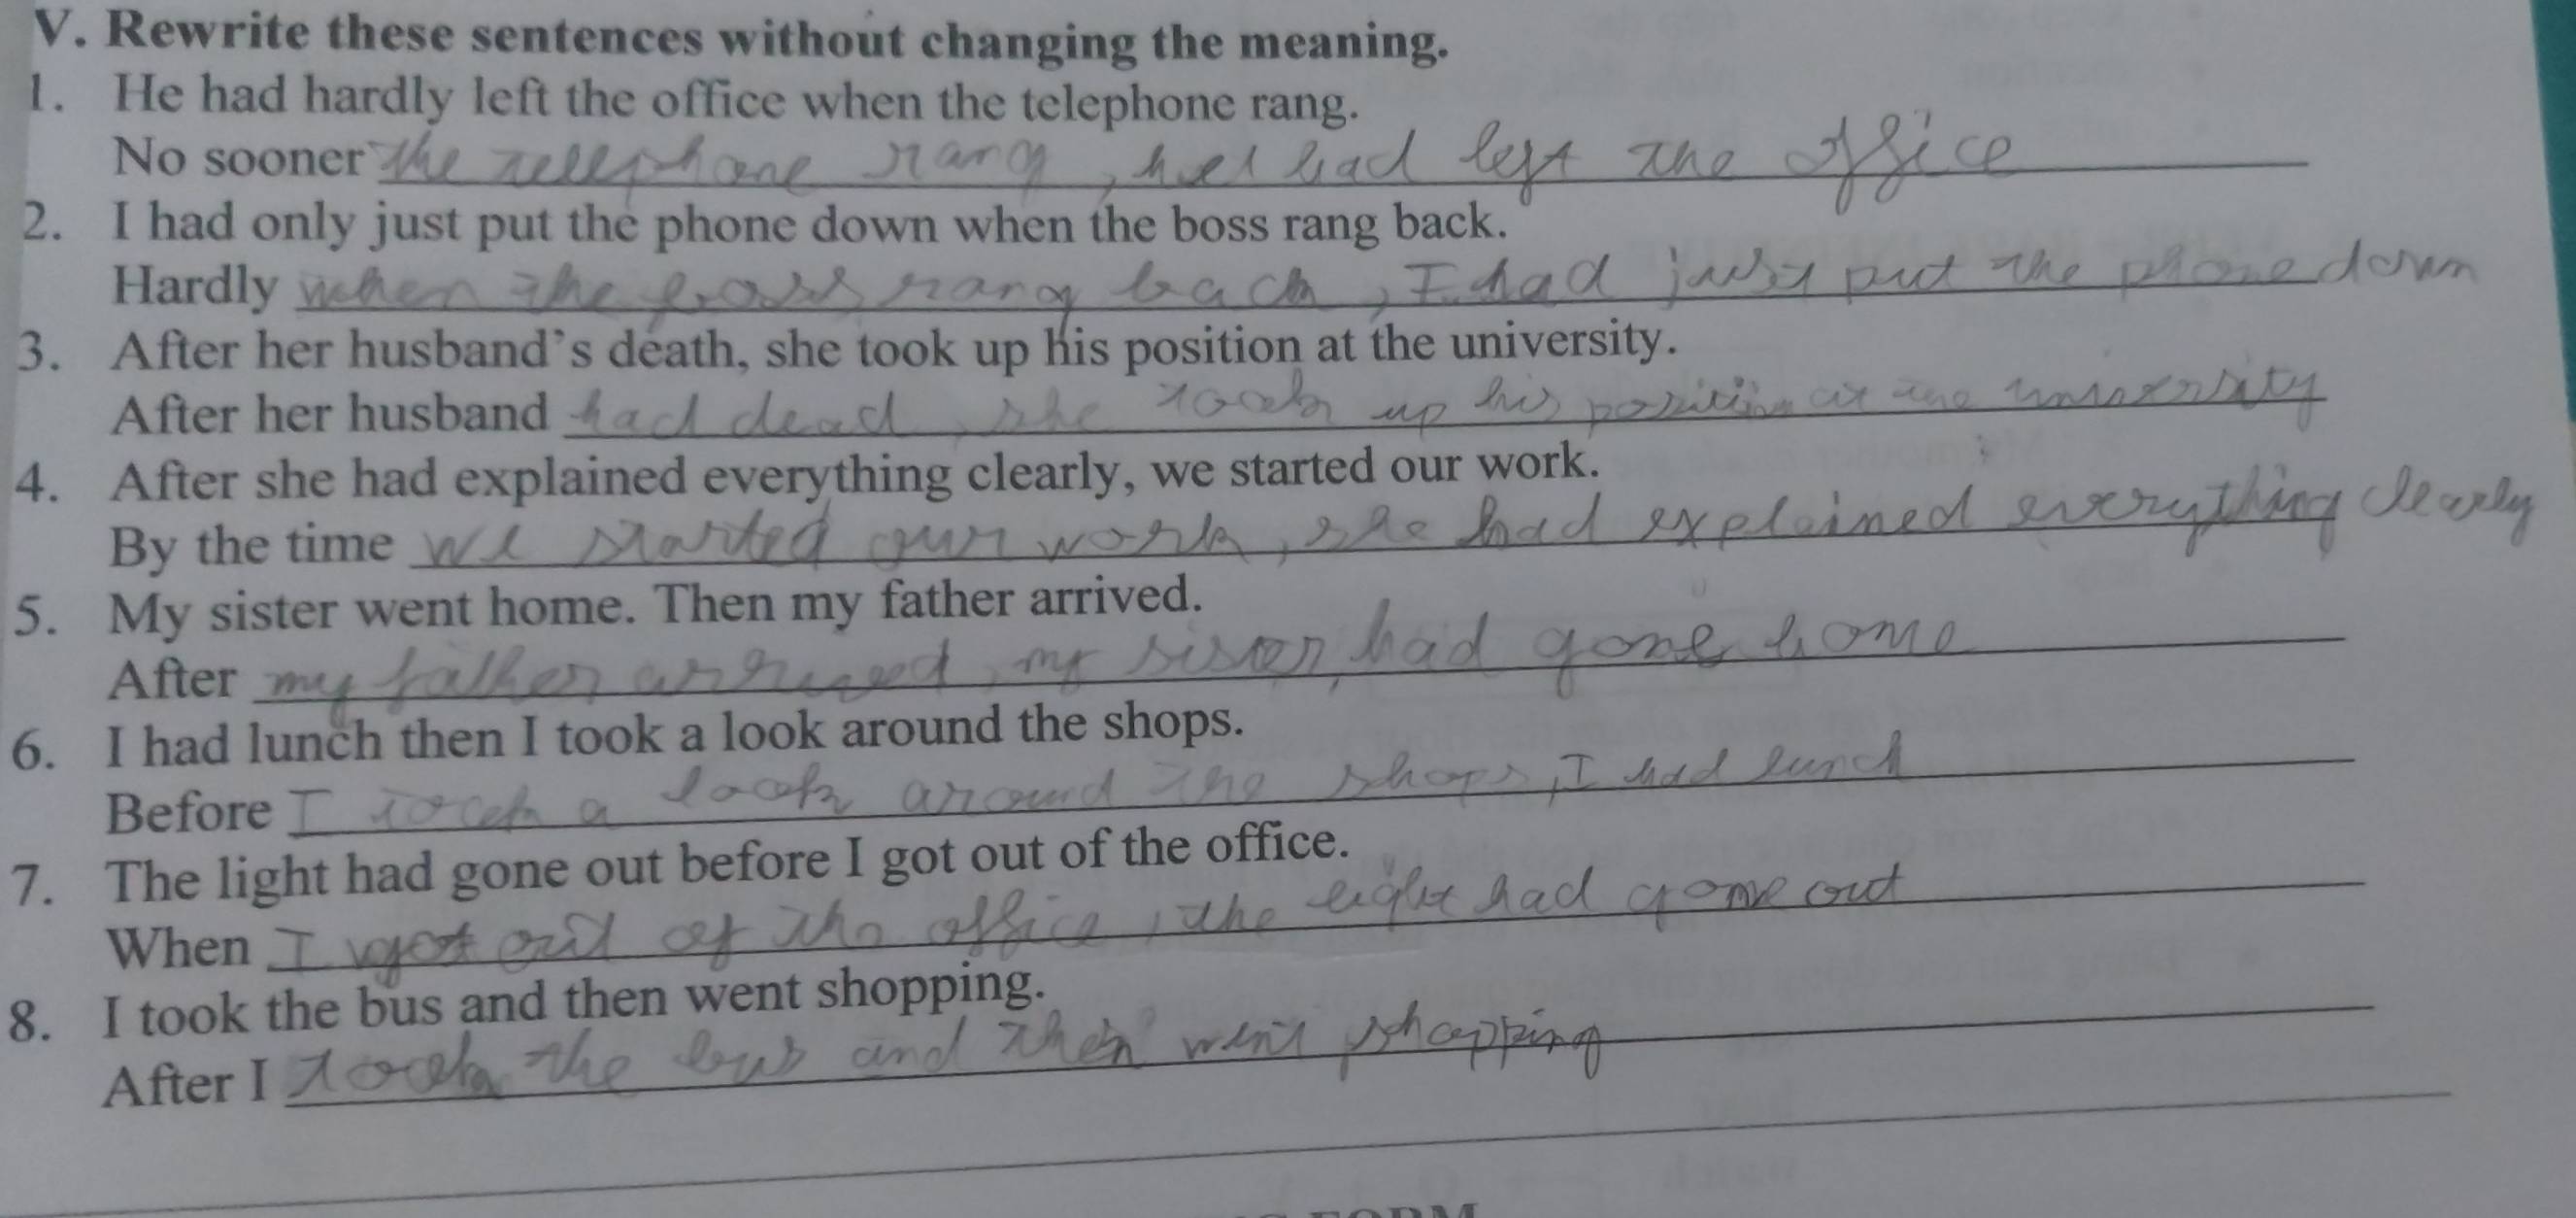 V. Rewrite these sentences without changing the meaning.
1. He had hardly left the office when the telephone rang.
No sooner the telephone rang, he had left the office
2. I had only just put the phone down when the boss rang back.
Hardly when the boss rang back, I had just put the phone down
3. After her husband's death, she took up his position at the university.
After her husband had dead, she took up his position at the university
4. After she had explained everything clearly, we started our work.
By the time we started our work, she had explained everything clearly
5. My sister went home. Then my father arrived.
After my father arrived, my sister had gone home
6. I had lunch then I took a look around the shops.
Before I took a look around the shops, I had lunch
7. The light had gone out before I got out of the office.
When I got out of the office, the light had gone out
8. I took the bus and then went shopping.
After I took the bus and then went shopping
FORM